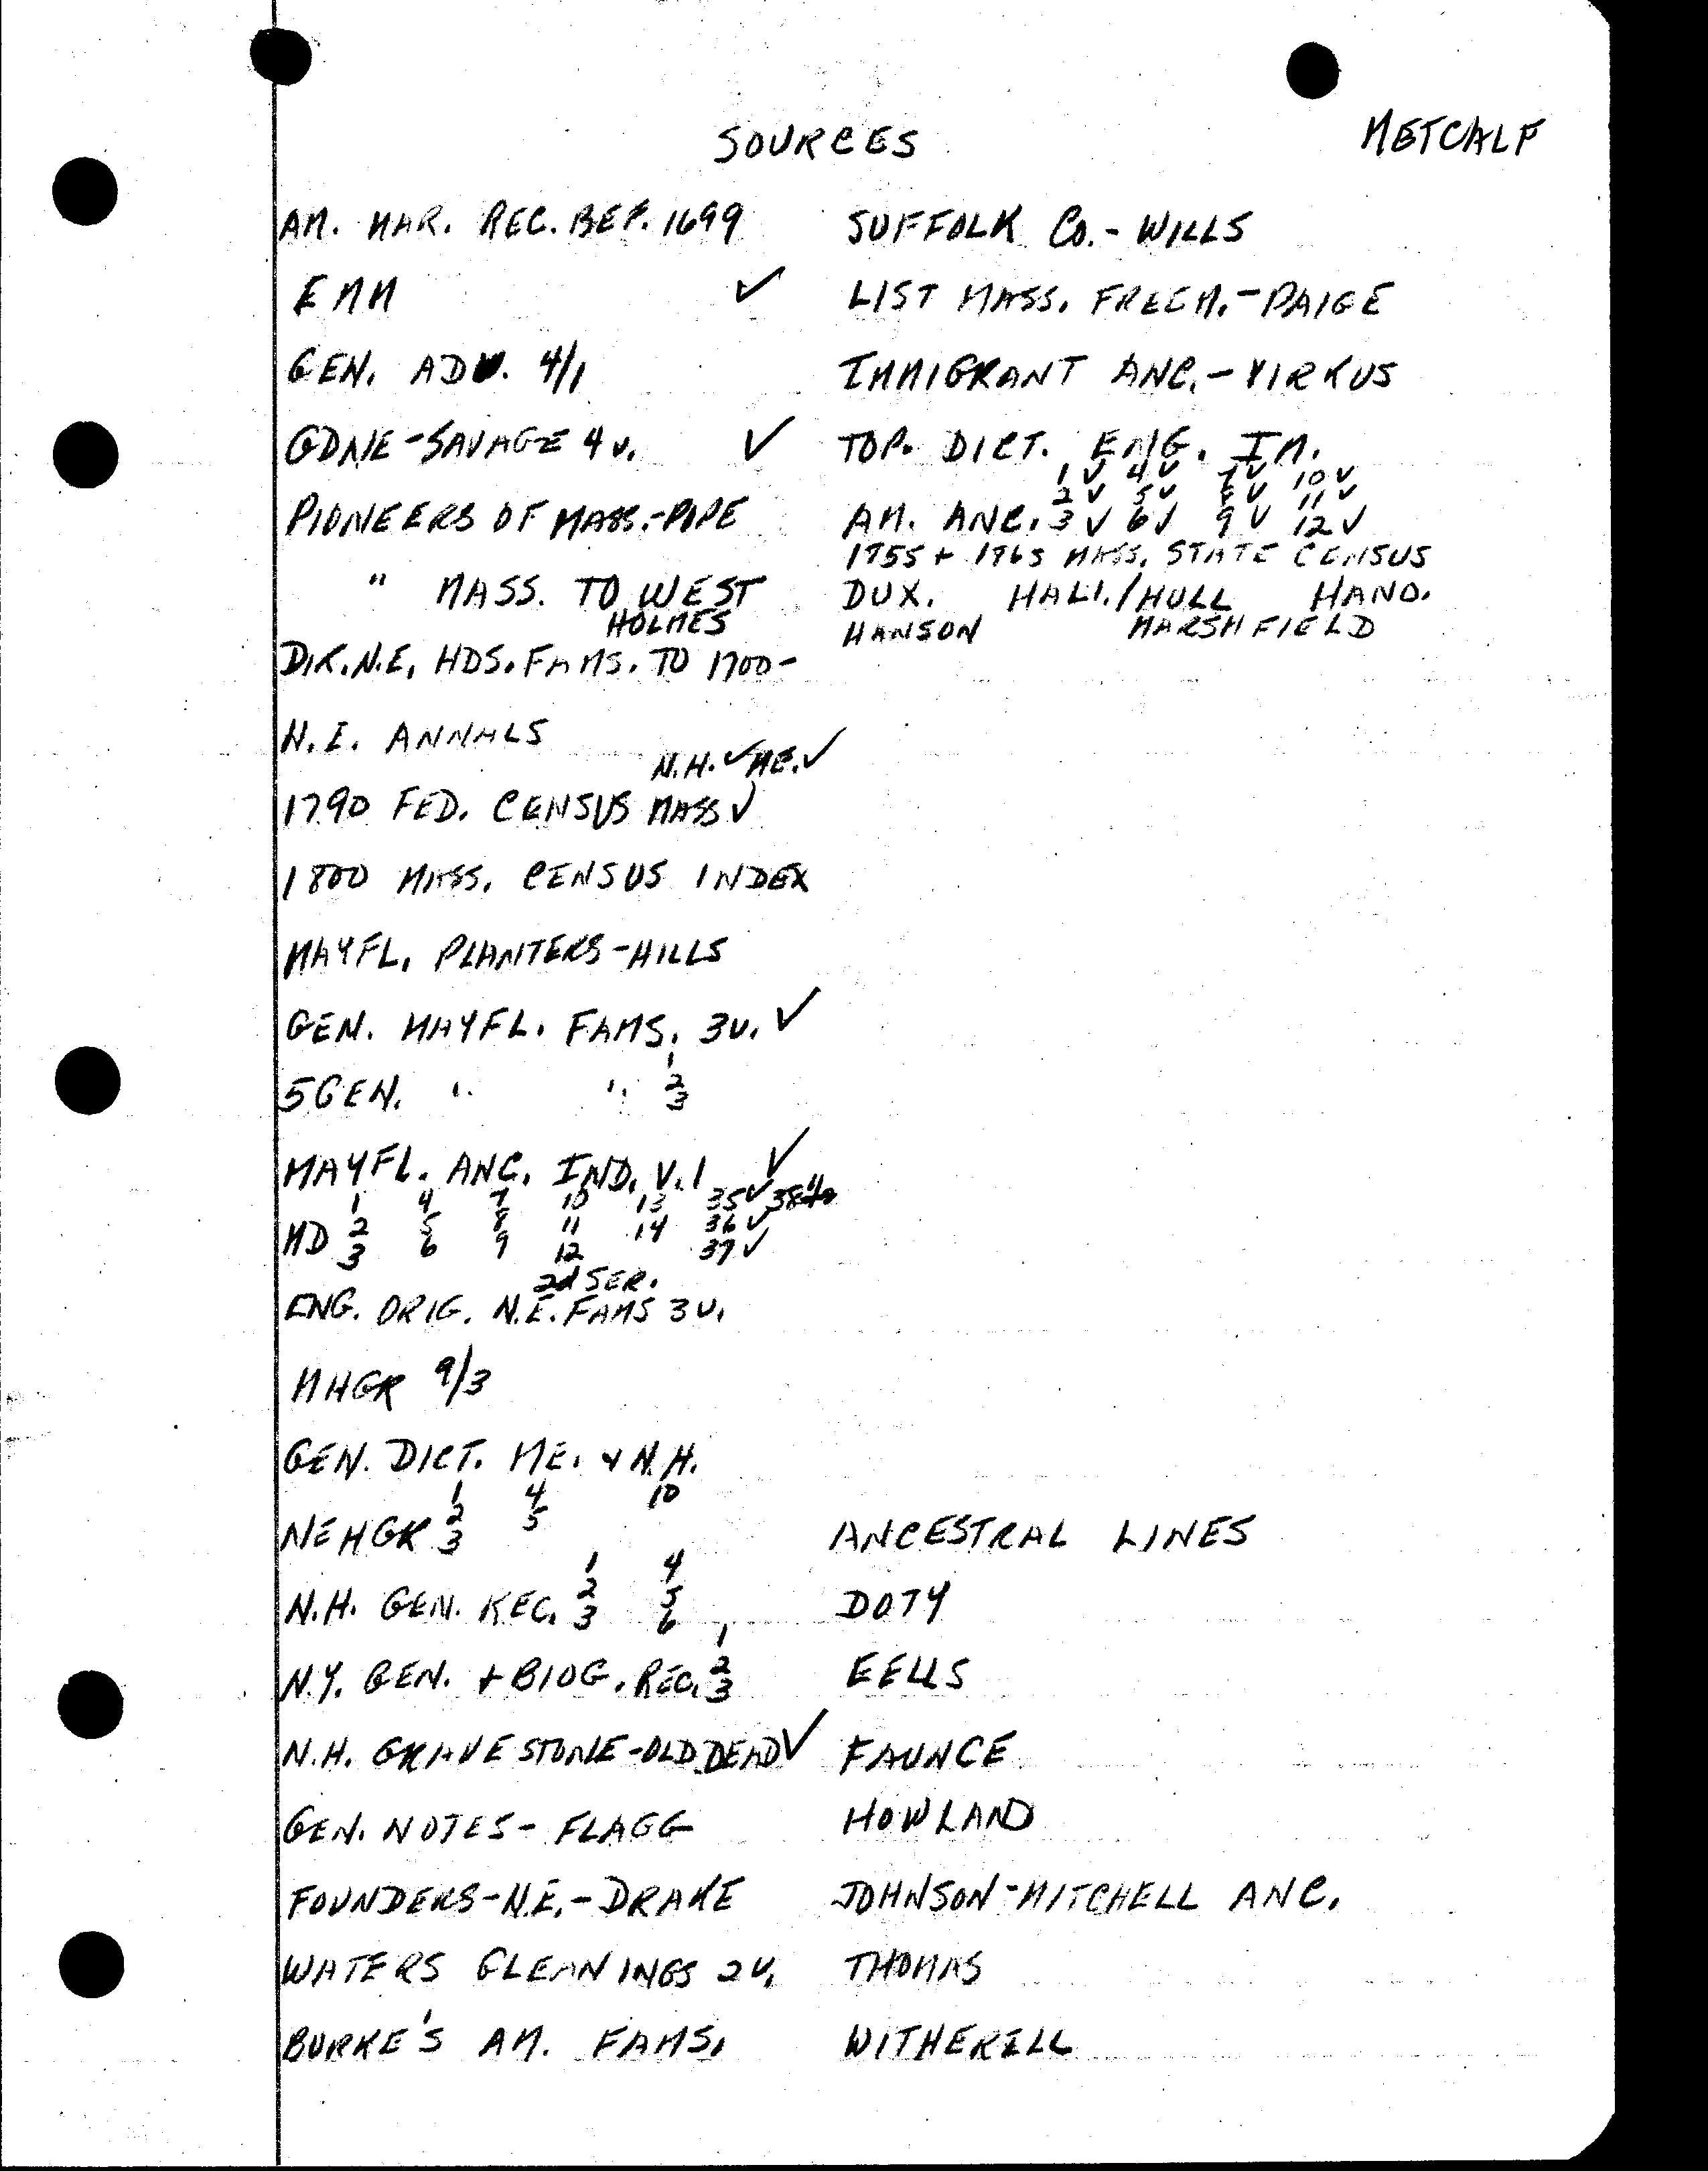 SOURCES
METCALF
AM. MAR. REC. BEF. 1699
EMM ✓
GEN. ADV. 4/1
GDNE-SAVAGE 4 v. ✓
PIONEERS OF MASS.-POPE
" MASS. TO WEST
HOLMES
DIR. N.E. HDS. FAMS. TO 1700-
N.E. ANNALS
N.H. ✓ ME. ✓
1790 FED. CENSUS MASS ✓
1800 MASS. CENSUS INDEX
MAYFL. PLANTERS-HILLS
GEN. MAYFL. FAMS. 3V. ✓
1
5GEN. " " 2
3
MAYFL. ANC. IND. V.1 ✓
1 4 7 10 13 35 ✓ 38
MD 2 5 8 11 14 36 ✓
3 6 9 12 37 ✓
2d SER.
ENG. ORIG. N.E. FAMS 3V.
MHGR 9/3
GEN. DICT. ME. + N.H.
1 4 10
NEHGR 2 5
3
1 4
N.H. GEN. REC. 2 5
3 6
1
N.Y. GEN. + BIOG. REC. 2
3
N.H. GRAVESTONE-OLD DEAD ✓
GEN. NOTES- FLAGG
FOUNDERS-N.E.-DRAKE
WATERS GLEANINGS 2V.
BURKE'S AM. FAMS.
SUFFOLK CO.- WILLS
LIST MASS. FREEM.-PAIGE
IMMIGRANT ANC.-VIRKUS
TOP. DICT. ENG. IM.
1 ✓ 4 ✓ 7 ✓ 10 ✓
2 ✓ 5 ✓ 8 ✓ 11 ✓
AM. ANC. 3 ✓ 6 ✓ 9 ✓ 12 ✓
1755 + 1765 MASS. STATE CENSUS
DUX. HALI./HULL HANO.
HANSON MARSHFIELD
ANCESTRAL LINES
DOTY
EELLS
FAUNCE
HOWLAND
JOHNSON-MITCHELL ANC.
THOMAS
WITHERELL